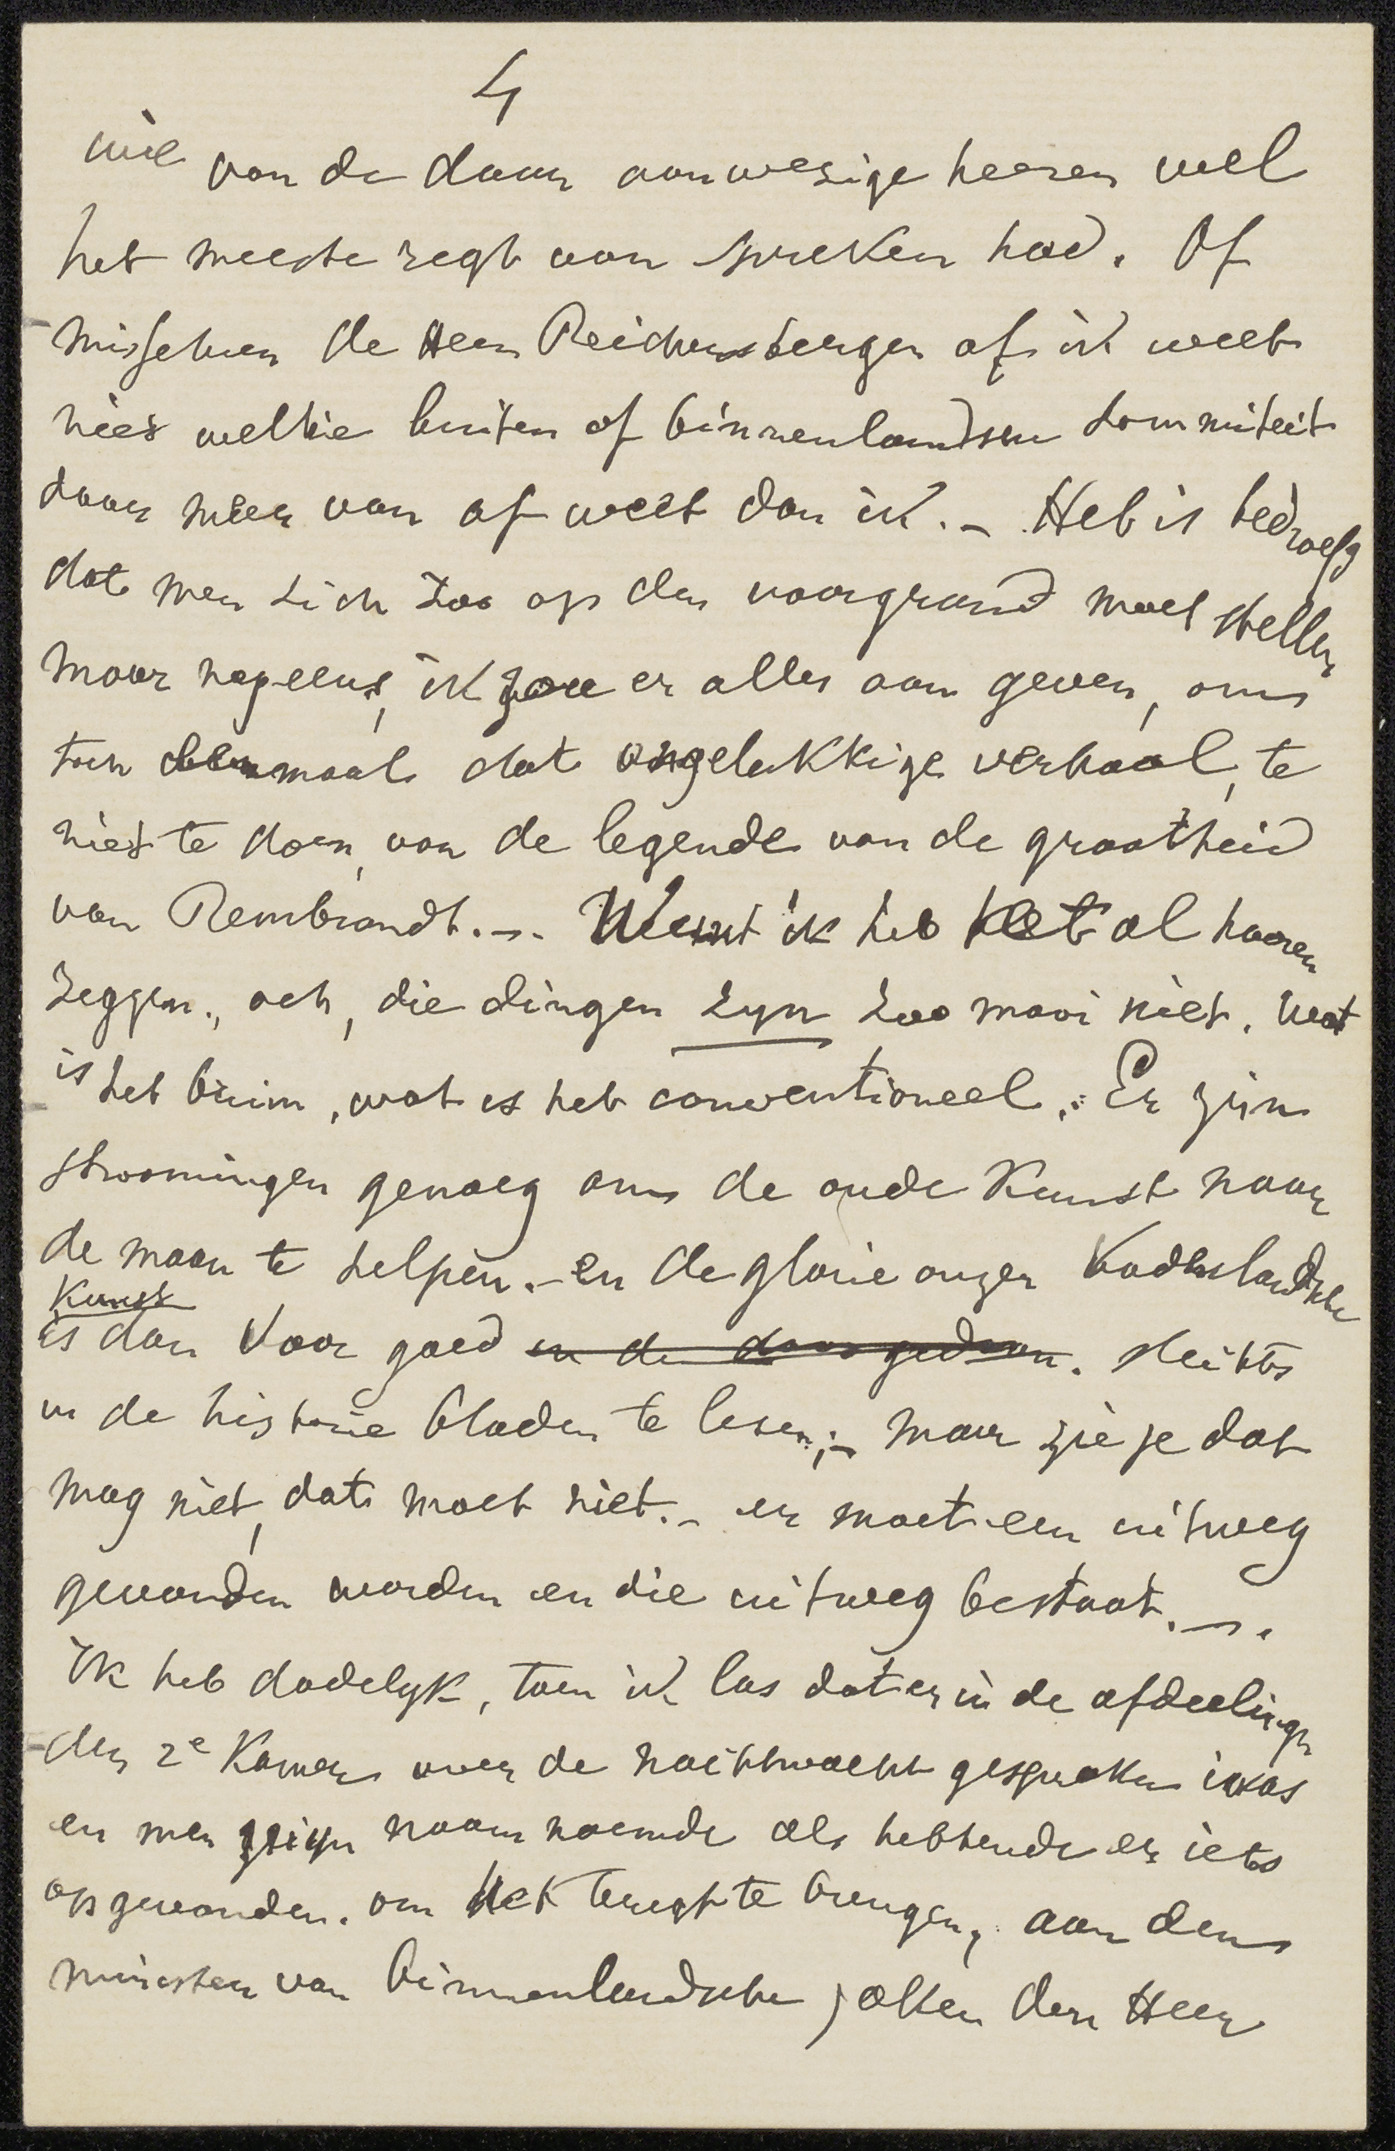 4
wie van de daar aanwezige heeren wel
het meeste regt van spreken had. Of
misschien de Heer Reichensberger of ik weet
niet welke buiten of binnenlandsche sommiteit
daar meer van af weet dan ik. – Het is bedroefg
dat men zich zoo op den voorgrond moet stellen
maar nog eens, ik zou er alles aan geven, om
toch eenmaal dat ongelukkige verhaal, te
niet te doen, van de legende van de grootheid
van Rembrandt. –. Want ik heb het al hooren
zeggen., och, die dingen zyn zoo mooi niet. Wat
is het bruin, wat is het conventioneel. Er zijn
stroomingen genoeg om de oude Kunst naar
de maan te helpen. – en de glorie onzer Vaderlandsche
Kunst
is dan voor goed in de doos gedaan. slechts
in de historie bladen te lezen; – maar zie je dat
mag niet, dat moet niet. – er moet een uitweg
gevonden worden en die uitweg bestaat. –.
Ik heb dadelyk, toen ik las dat er in de afdeelingen
der 2e Kamer over de nachtwacht gesproken was
en men mijn naam noemde als hebbende er iets
op gevonden. om het teregt te brengen, aan den
minister van binnenlandsche zaken den Heer